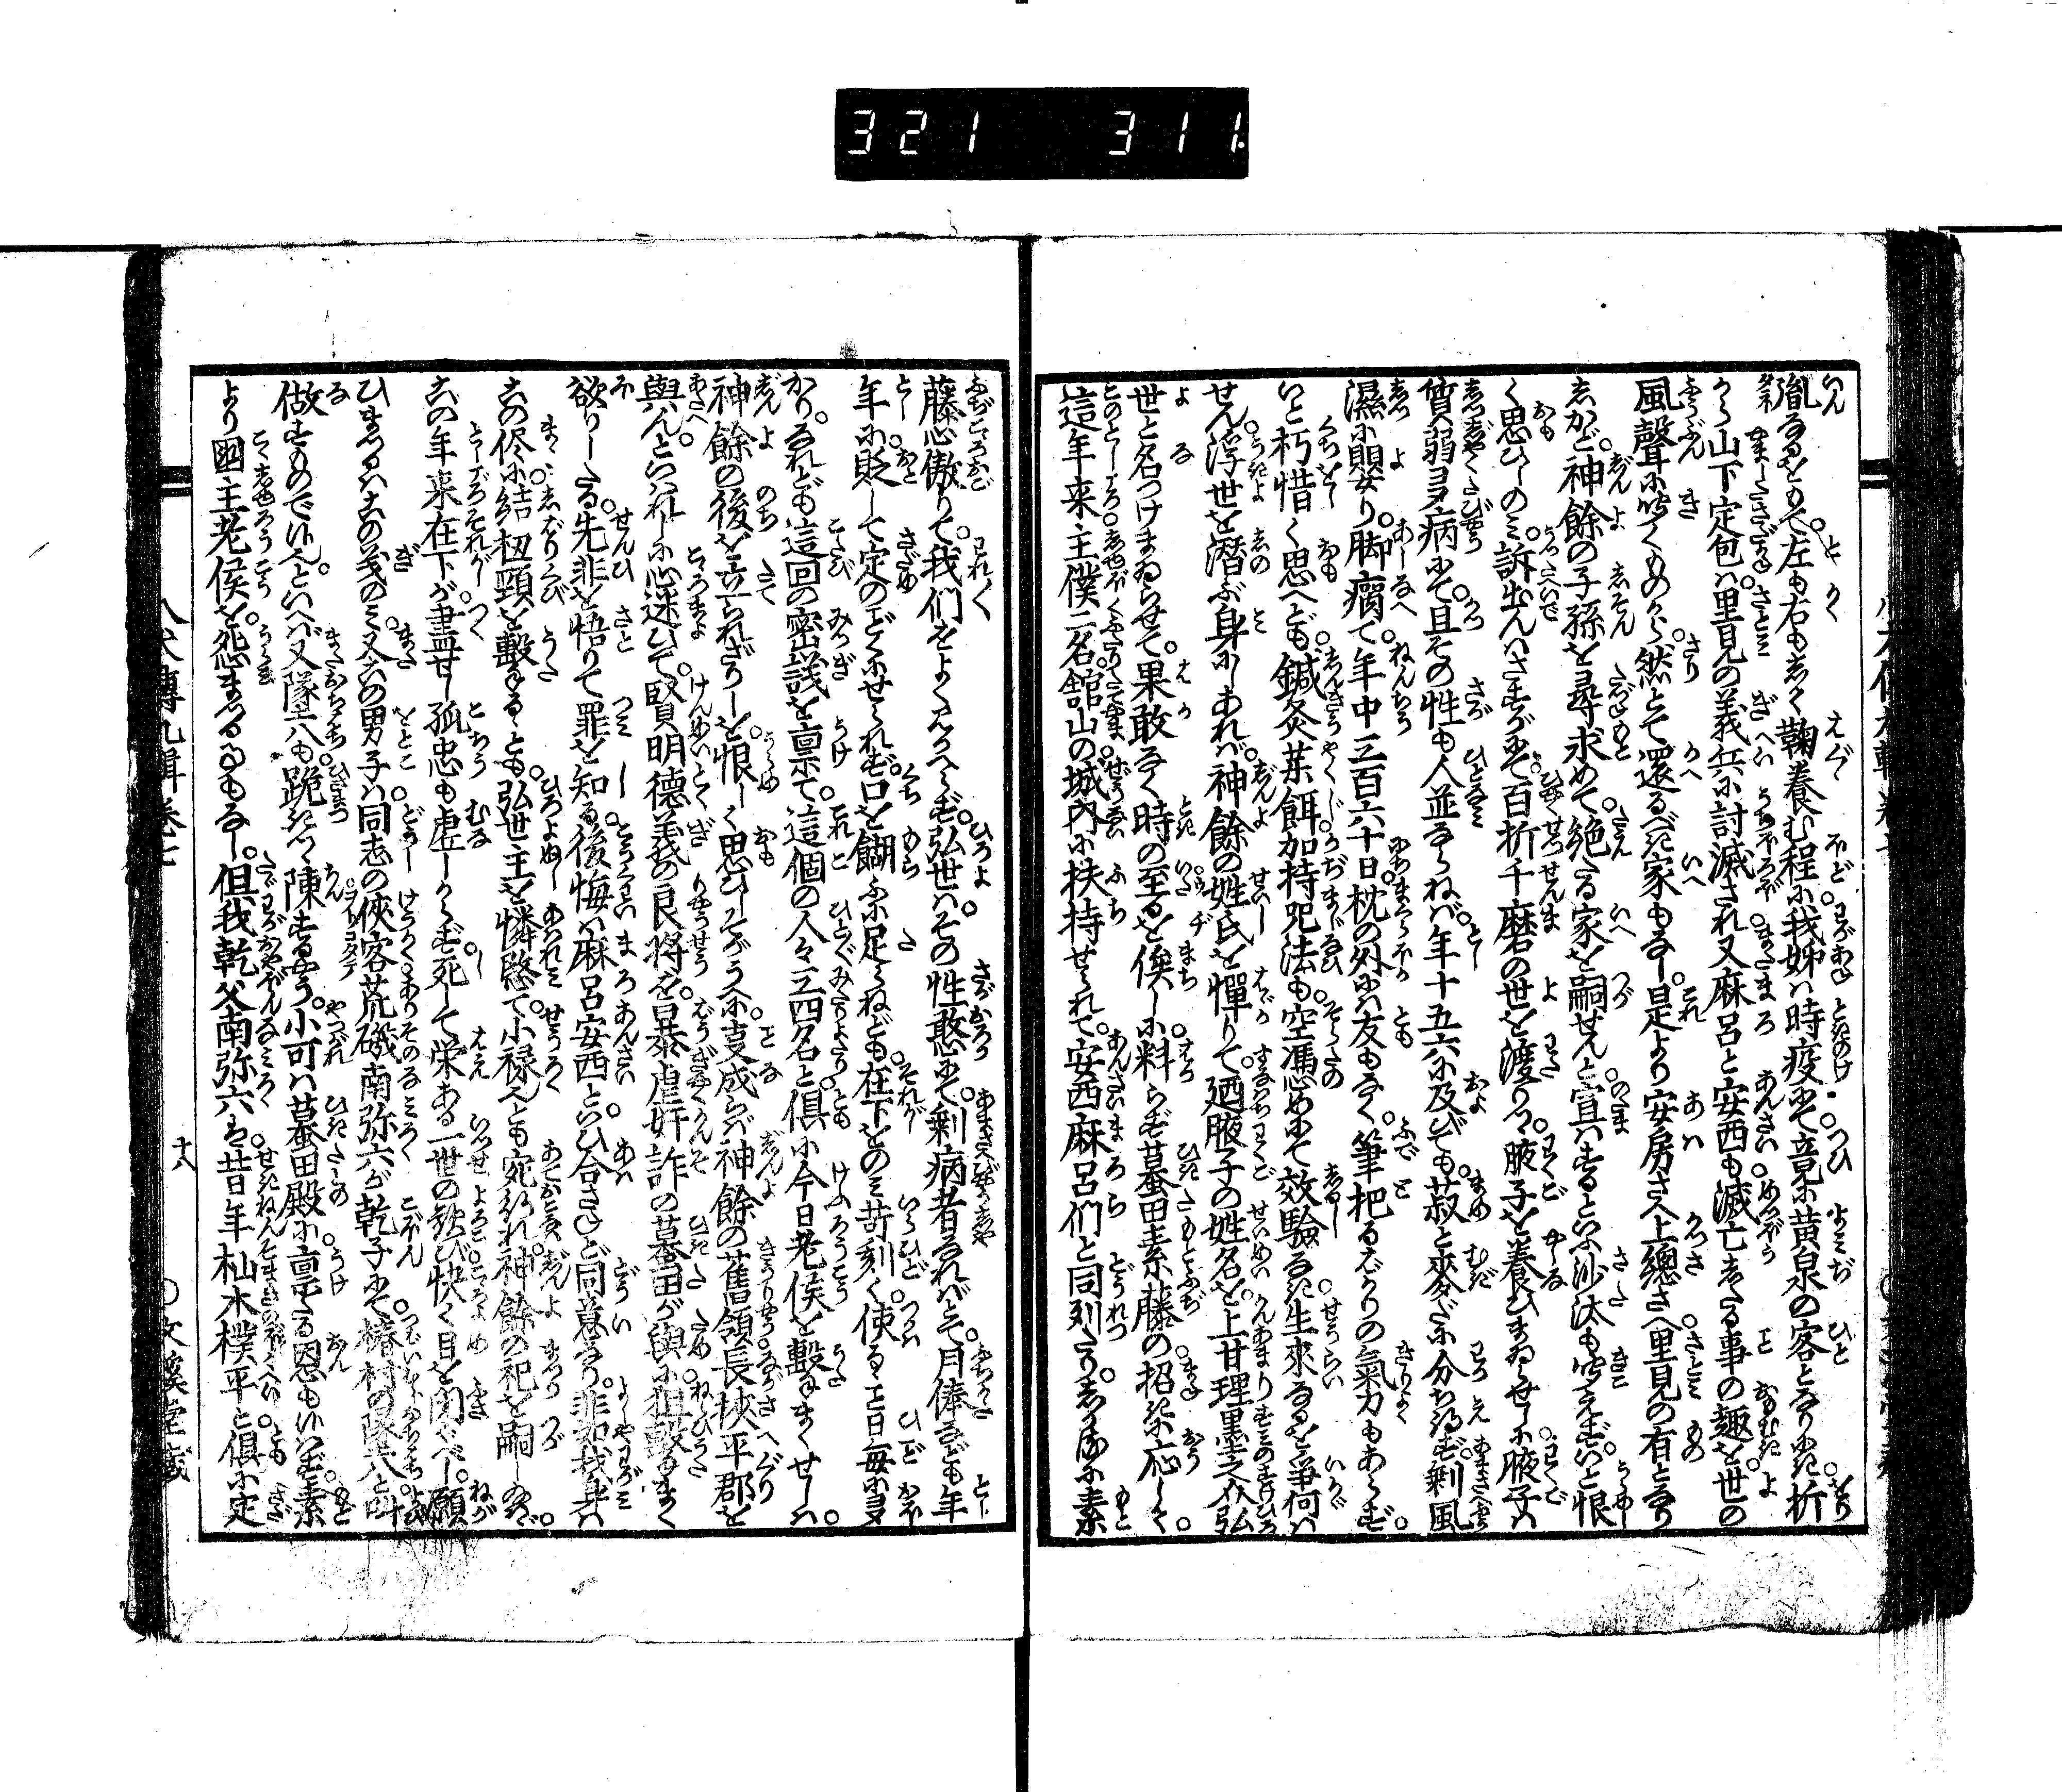 321 311
胤なるをもて。左も右もしく鞠養む程に。我姉は時疫にて竟に黄泉の客となりにき。折
から山下定包は。里見の義兵に討滅され。又麻呂と安西も滅亡したる事の趣を。世の
風聲に聞くものから。然とて還るべき家もなし。是より安房さへ上總さへ里見の有となり
しかど。神餘の子孫を尋求めて。絶たる家を嗣せんと。宣はするといふ沙汰も聞えず。いと恨し
く思ひしのみ。訴出んはさすがにて。百折千磨の世を渡りつ。腋子を養ひまゐらせしに。腋子は
質弱多病にて。且その性も人並ならねば。年十五六に及びても。菽と麥だに分ち得ず。剰風
濕に㒹安り。脚瘸て。年中三百六十日。枕の外には友もなく。筆把るばかりの氣力もあらず。
いと朽惜く思へども。鍼灸藥餌加持咒法も。空憑めにて效驗なき。生來なるを爭何は
せん。浮世を潜ぶ身にしあれば。神餘の姓氏を憚りて。廼腋子の姓名を。上甘理墨之介弘
世と名つけまゐらせて。果敢なく時の至るを俟しに。料らず蟇田素藤の招きに応じて。
這年来主僕二名。舘山の城内に扶持せられて。安西麻呂們と同列たり。しかるに素
藤心傲りて。我們をよくもへらず。弘世はその性憨にて。剰病者なればとて。月俸さへも年
年に貶して。定のごとくせられず。口を餬ふに足らねども。在下をのみ苛刻く。使ること日毎に多
かり。されども這回の密議を稟て。這個の人々三四名と。倶に今日老侯を擊まくせしは。
神餘の後を立られざりしを。恨しく思ひしそがうへに。事成らば神餘の舊領長狹平郡を
與んといはれしに心迷ひて。賢明德義の良將を。暴虐奸詐の蟇田が與に狙擊まく
欲りしたる。先非を悟りて罪を知る。後悔は麻呂安西といひ合さねど同意なり。非如我身は
この侭に。結紐頸を擊るゝとも。弘世主を憐愍て。小禄へとも宛られ。神餘の祀を嗣し給はゞ。
この年来在下が。盡せし孤忠も虚しからず。死して栄ある一世の歓び。快く目を閉ぐべし。願
ひまつるはこの義のみ。又この男子は。同志の俠客荒磯南弥六が乾子にて。椿村の墜八と叫
做すものでは候へといへば。又墜八も。跪きつゝ陳ずるやう。小可は蟇田殿に。稟たる恩も候はず。素
より國主老侯を。怨まつるにもあらず。但我乾父南弥六は。昔年杣木樸平と倶に定
十八